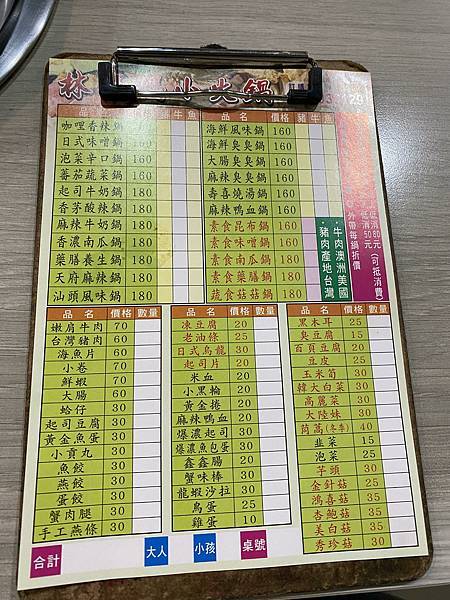 林
小火鍋
品名 價格 豬 牛 魚
咖哩香辣鍋 160
日式味噌鍋 160
泡菜辛口鍋 160
蕃茄蔬菜鍋 160
起司牛奶鍋 180
香茅酸辣鍋 180
麻辣牛奶鍋 180
香濃南瓜鍋 180
藥膳養生鍋 180
天府麻辣鍋 180
汕頭風味鍋 180
品名 價格 豬 牛 魚
海鮮風味鍋 160
海鮮臭臭鍋 160
大腸臭臭鍋 160
麻辣臭臭鍋 160
壽喜燒湯鍋 160
麻辣鴨血鍋 160
素食昆布鍋 160
素食味噌鍋 160
素食南瓜鍋 180
素食藥膳鍋 180
蔬食菇菇鍋 180
低消80元(可抵消費)
低消50元
外帶每鍋折價
牛肉澳洲美國
豬肉產地台灣
品名 價格 數量
嫩肩牛肉 70
台灣豬肉 60
海魚片 60
小卷 70
鮮蝦 70
大腸 60
蛤仔 30
起司豆腐 30
黃金魚蛋 30
小貢丸 30
魚餃 30
燕餃 30
蛋餃 30
蟹肉腿 30
手工燕條 30
品名 價格 數量
凍豆腐 20
老油條 25
日式烏龍 30
起司片 20
米血 20
小黑輪 20
黃金捲 20
麻辣鴨血 30
爆濃起司 30
爆濃魚包蛋 30
鑫鑫腸 20
蟹味棒 30
龍蝦沙拉 30
鳥蛋 25
雞蛋 10
品名 價格 數量
黑木耳 25
臭豆腐 15
百頁豆腐 20
豆皮 25
玉米筍 30
韓大白菜 30
高麗菜 30
大陸妹 30
茼萵(冬季) 40
韭菜 15
泡菜 25
芋頭 30
金針菇 25
鴻喜菇 35
杏鮑菇 35
美白菇 35
秀珍菇 30
合計 大人 小孩 桌號